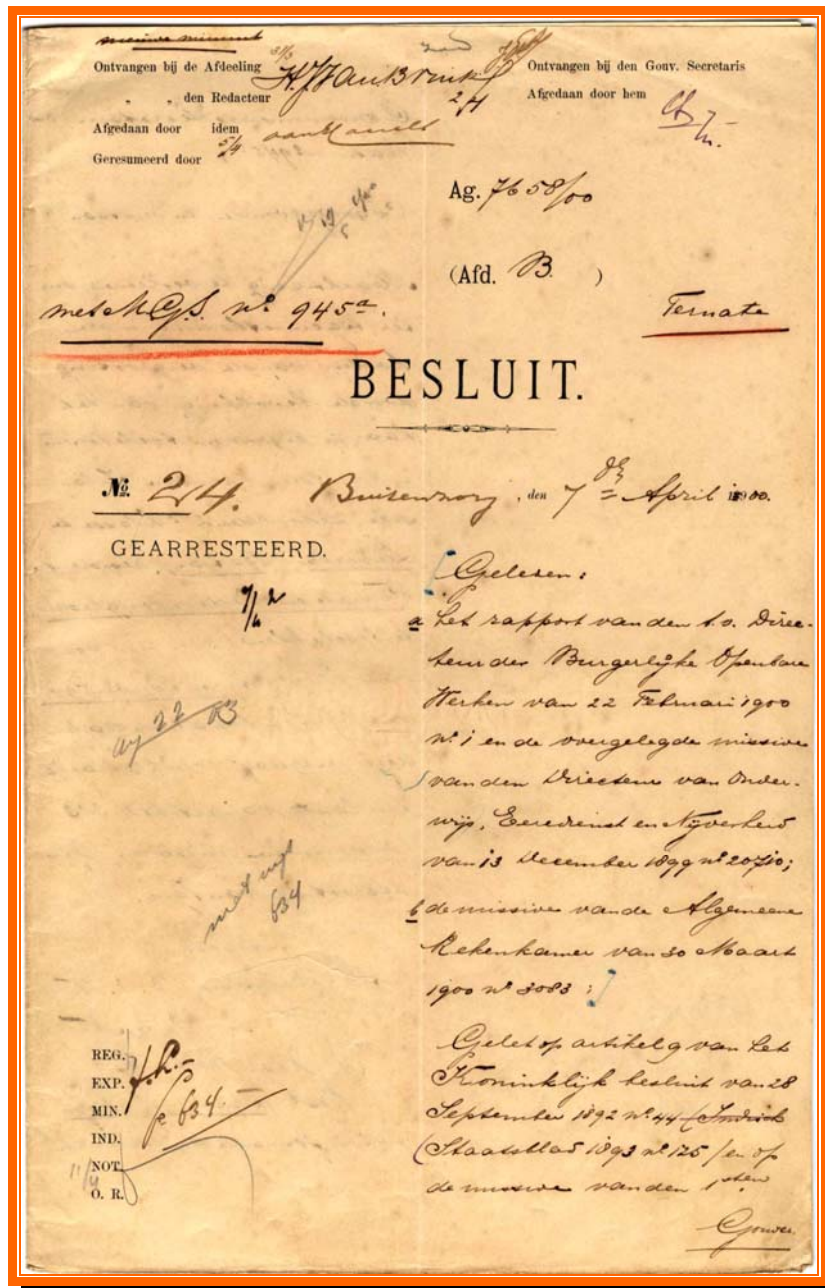 nieuwe minuut
Ontvangen bij de Afdeeling 31/3
" " den Redacteur 2/4
Afgedaan door idem
Geresumeerd door 5/4
Ontvangen bij den Gouv. Secretaris
Afgedaan door hem
Ag. 7658/00
(Afd. B. )
met MGS. no 945a.
Ternate
BESLUIT.
No. 24. Buitenzorg, den 7de April 1900.
GEARRESTEERD.
Gelezen:
a het rapport van den t.v. Direc-
teur der Burgerlijke Openbare
Werken van 22 Februari 1900
no 1 en de overgelegde missive
van den Directeur van Onder-
wijs, Eeredienst en Nijverheid
van 13 December 1899 no 20710;
ag 22
634
b de missive van de Algemeene
Rekenkamer van 30 Maart
1900 no 3083;
Gelet op artikel 9 van het
Koninklijk besluit van 28
September 1892 no 44 (Indisch
(Staatsblad 1893 no 125) en op
de missive van den 1sten
Gouver.
REG.
EXP.
MIN. 634.-
IND.
NOT.
O. R.
11/4